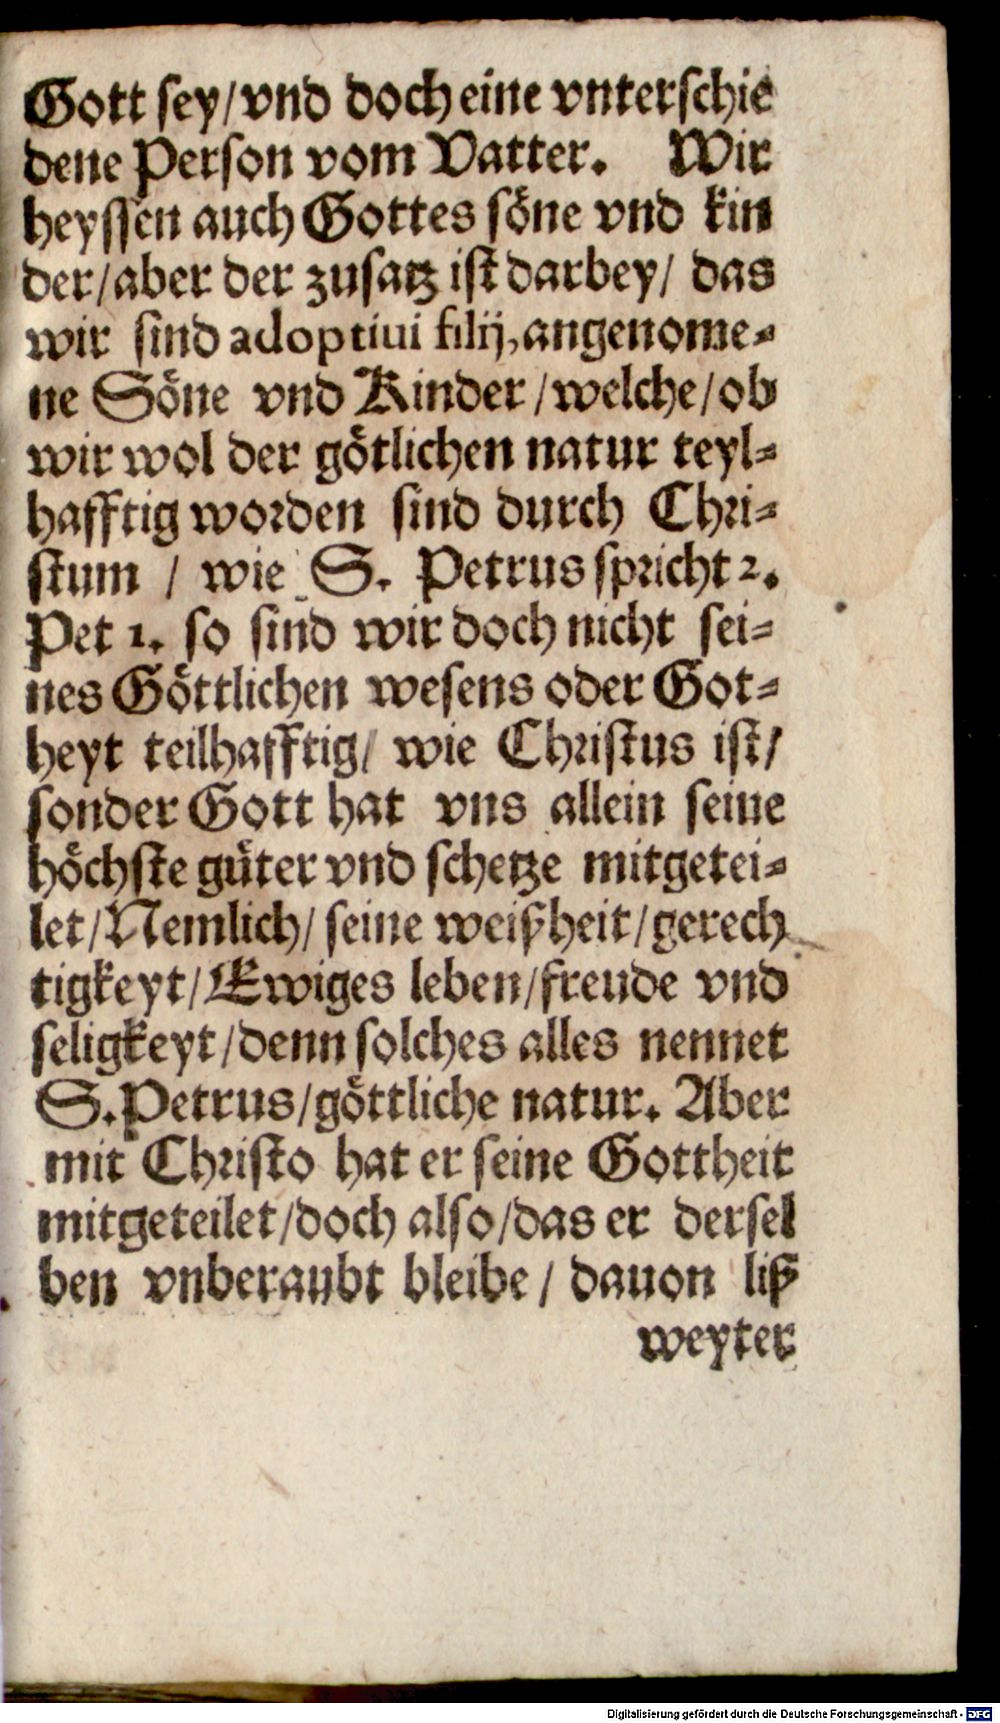 Gott sey/vnd doch eine vnterschie
dene Person vom Vatter. Wir
heyssen auch Gottes söne vnd kin
der/aber der zusatz ist darbey/ das
wir sind adoptiui filij, angenome-
ne Söne vnd Kinder/welche/ob
wir wol der götlichen natur teyl-
hafftig worden sind durch Chri-
stum / wie S. Petrus spricht 2.
Pet 1. so sind wir doch nicht sei-
nes Göttlichen wesens oder Got-
heyt teilhafftig/ wie Christus ist/
sonder Gott hat vns allein seine
höchste güter vnd schetze mitgetei-
let/Nemlich/ seine weißheit/gerech
tigkeyt/Ewiges leben/freude vnd
seligkeyt/denn solches alles nennet
S. Petrus/göttliche natur. Aber
mit Christo hat er seine Gottheit
mitgeteilet/doch also/das er dersel
ben vnberaubt bleibe/ dauon liß
weyter
Digitalisierung gefördert durch die Deutsche Forschungsgemeinschaft - DFG